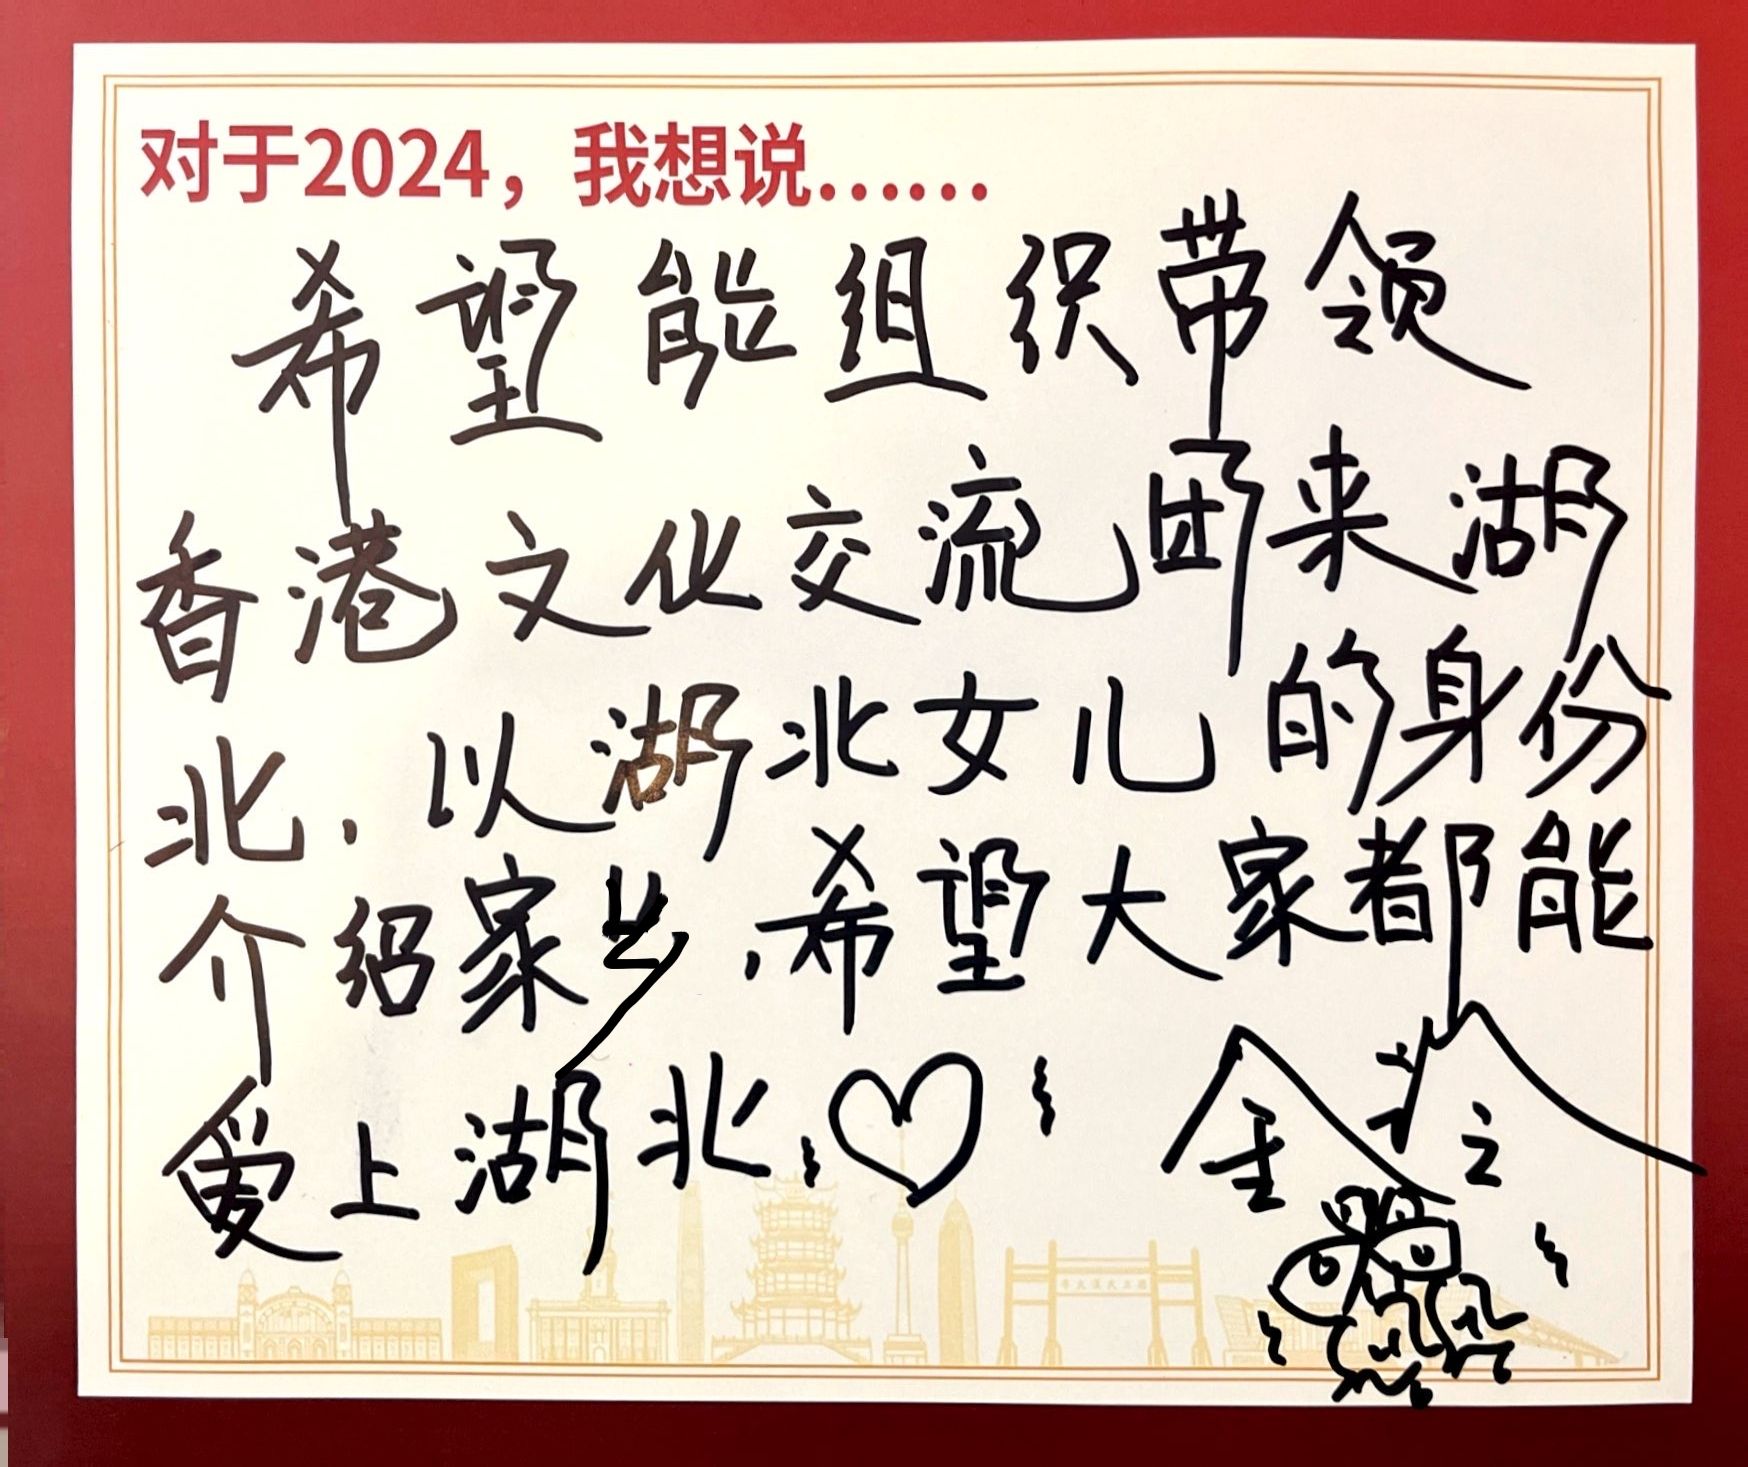 对于2024，我想说……
希望能组织带领
香港文化交流团来湖
北，以湖北女儿的身份能
介绍家乡，希望大家都能
爱上湖北，♡